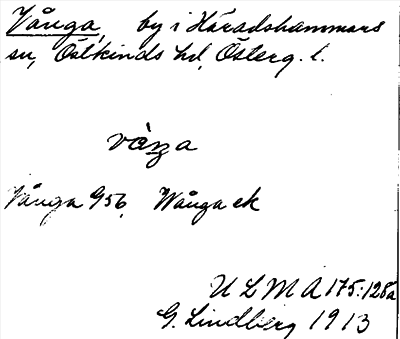 Vånga, by i Häradshammars
sn, Östkinds hd, Österg. l.
Vånga G56, Wånga ek
U L M A 175:128a
G. Lindberg 1913